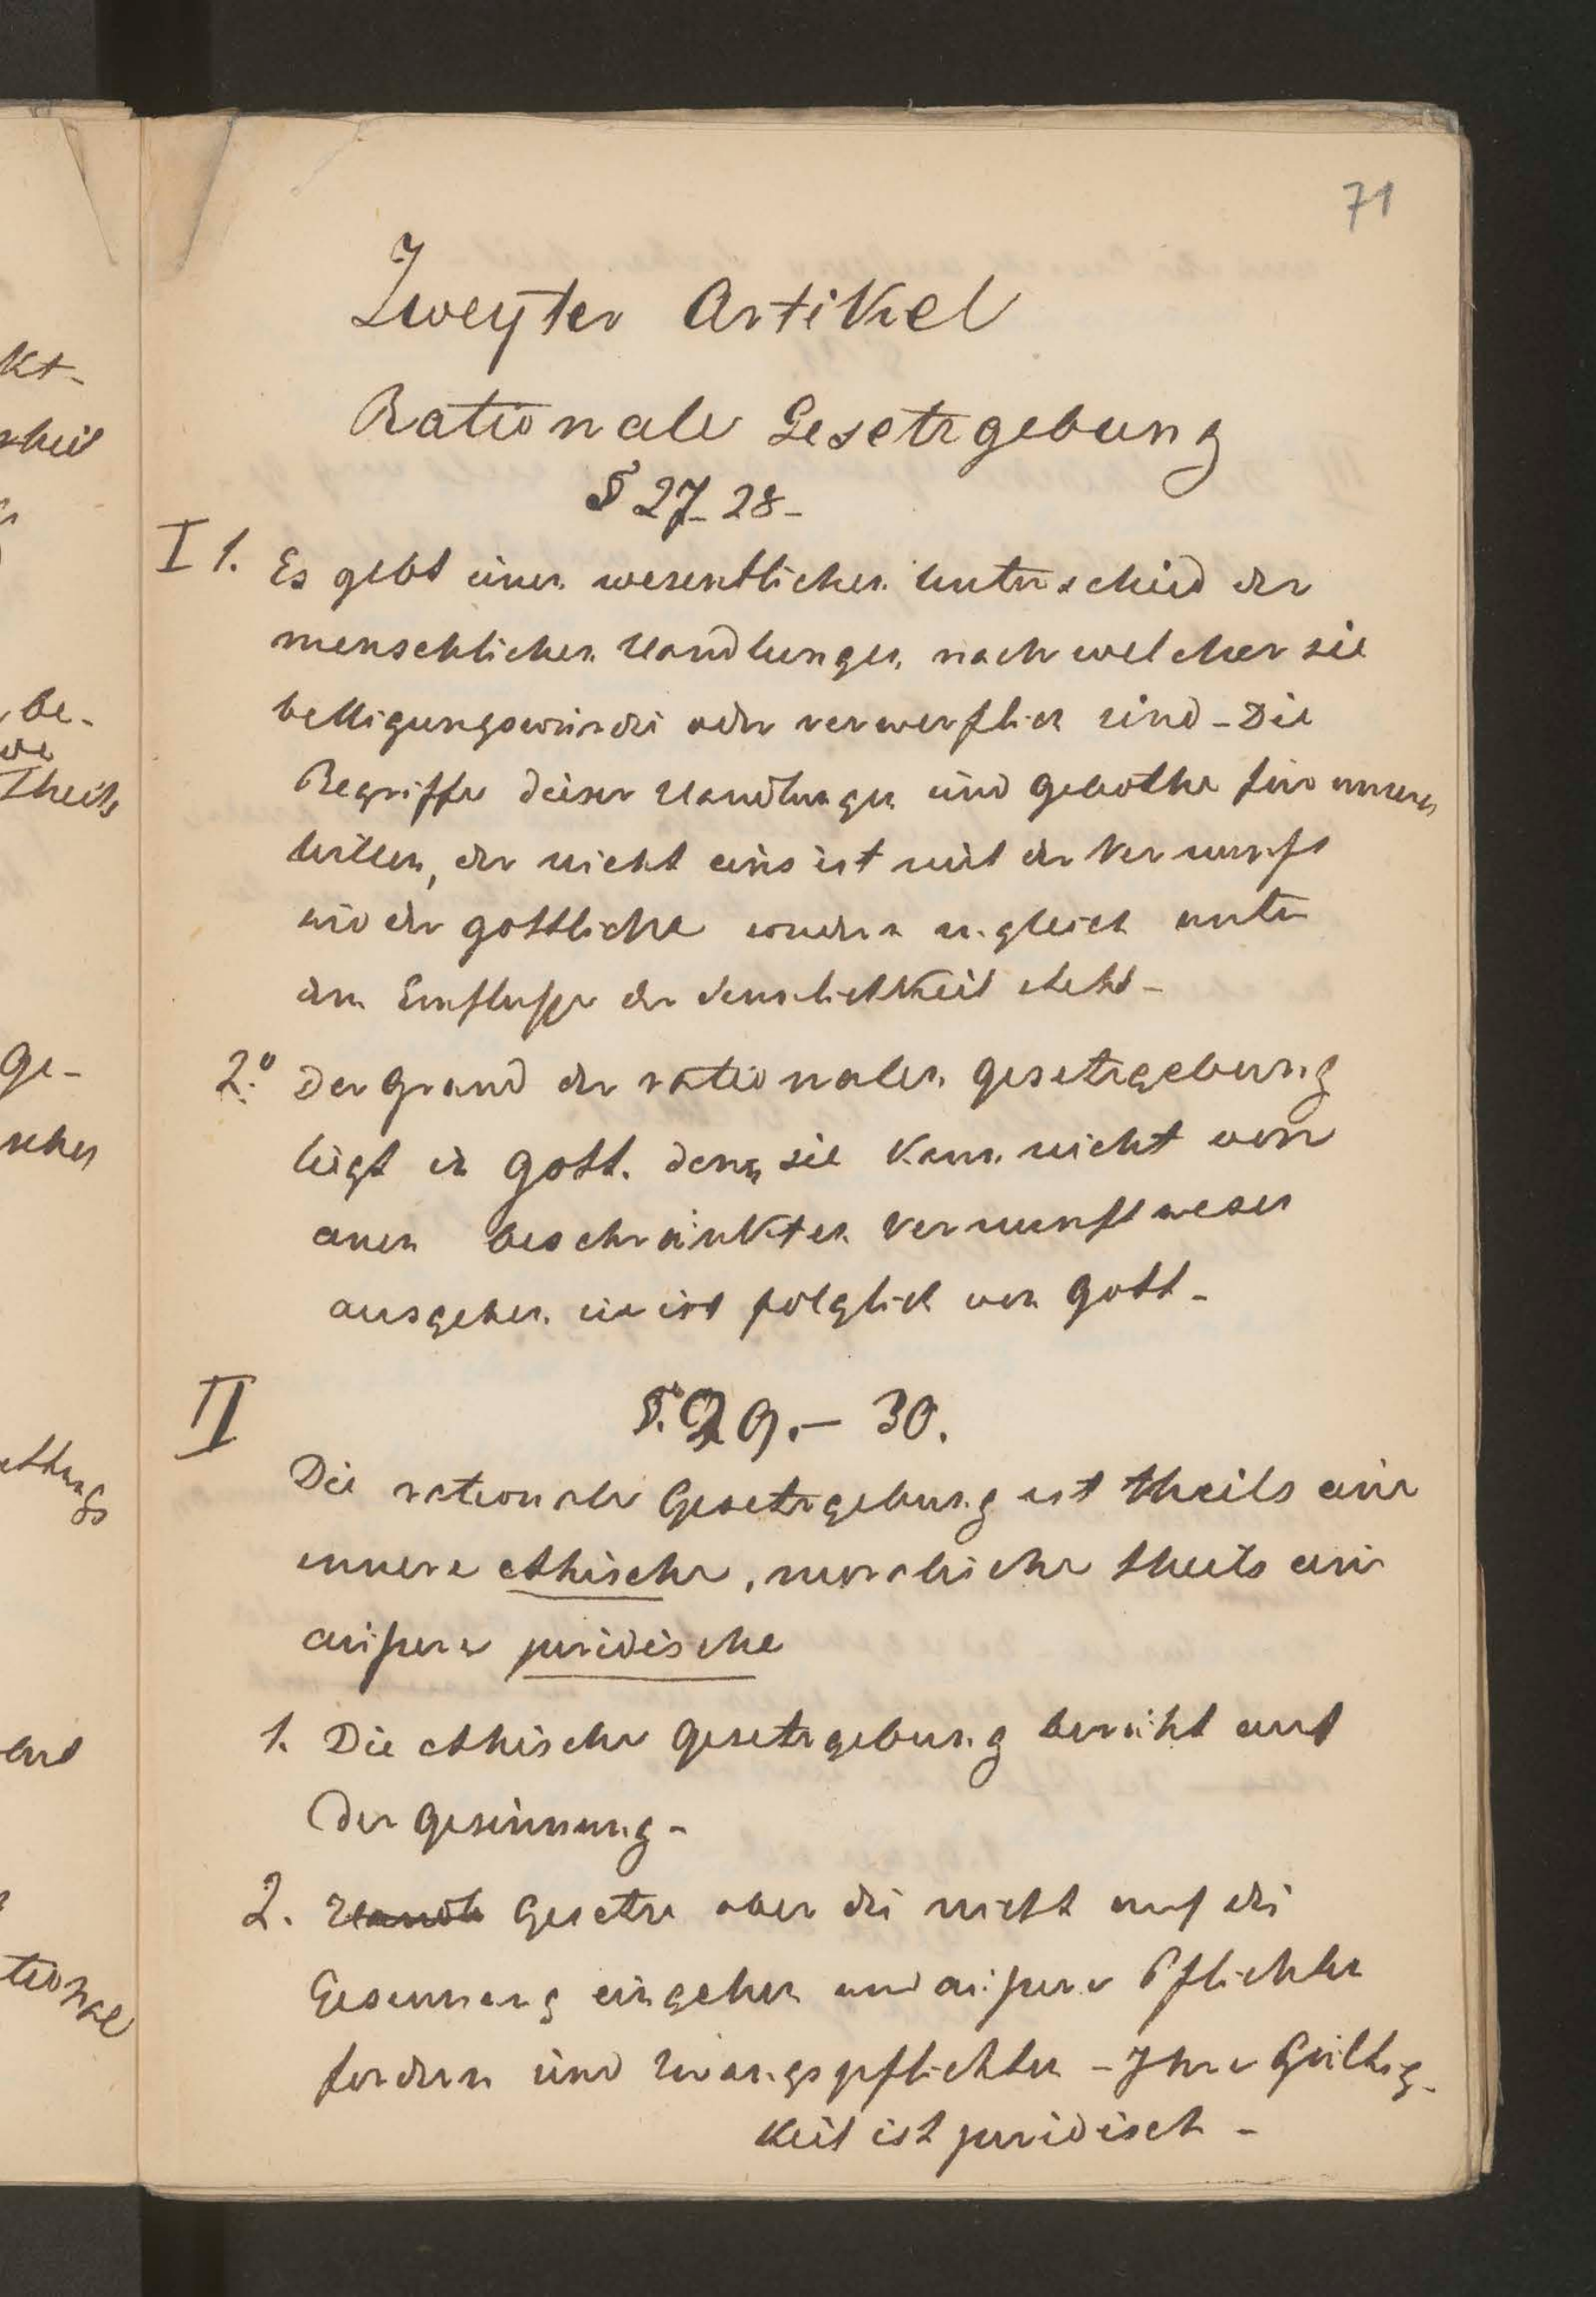 71
Zweyter Artikel
Rationale Gesetzgebung
§ 27-28-
I 1. Es gebt einen wesentlichen Unterschied der
menschlichen Handlungen, nach welcher sie
belligungswürdi oder verwerflich sind - Die
Begriffe dieser Handlungen sind Gebothe für unseren
Willen, der nicht eins ist mit der Vernunft
wie der gottliche sondern zugleich unter
dem Einflusse der Sinnlichkeit steht -
2.° Der Grund der rationalen Gesetzgebung
liegt in Gott. denn sie kann nicht von
einen beschränkten Vernunftwesen
ausgehen. sie ist folglich von Gott -
II §. 29. - 30.
Die rationale Gesetzgebung ist theils eine
innere ethische, moralische theils eine
äußere juridische
1. Die ethische Gesetzgebung beruht auf
der Gesinnung -
2. Handl Gesetze aber die nicht auf die
Gesinnung eingehen und äußere Pflichten
fordern sind Zwangspflichten - Ihre Gültig-
keit ist juridisch -
kt-
theil
be-
theils
ge-
scher
tional